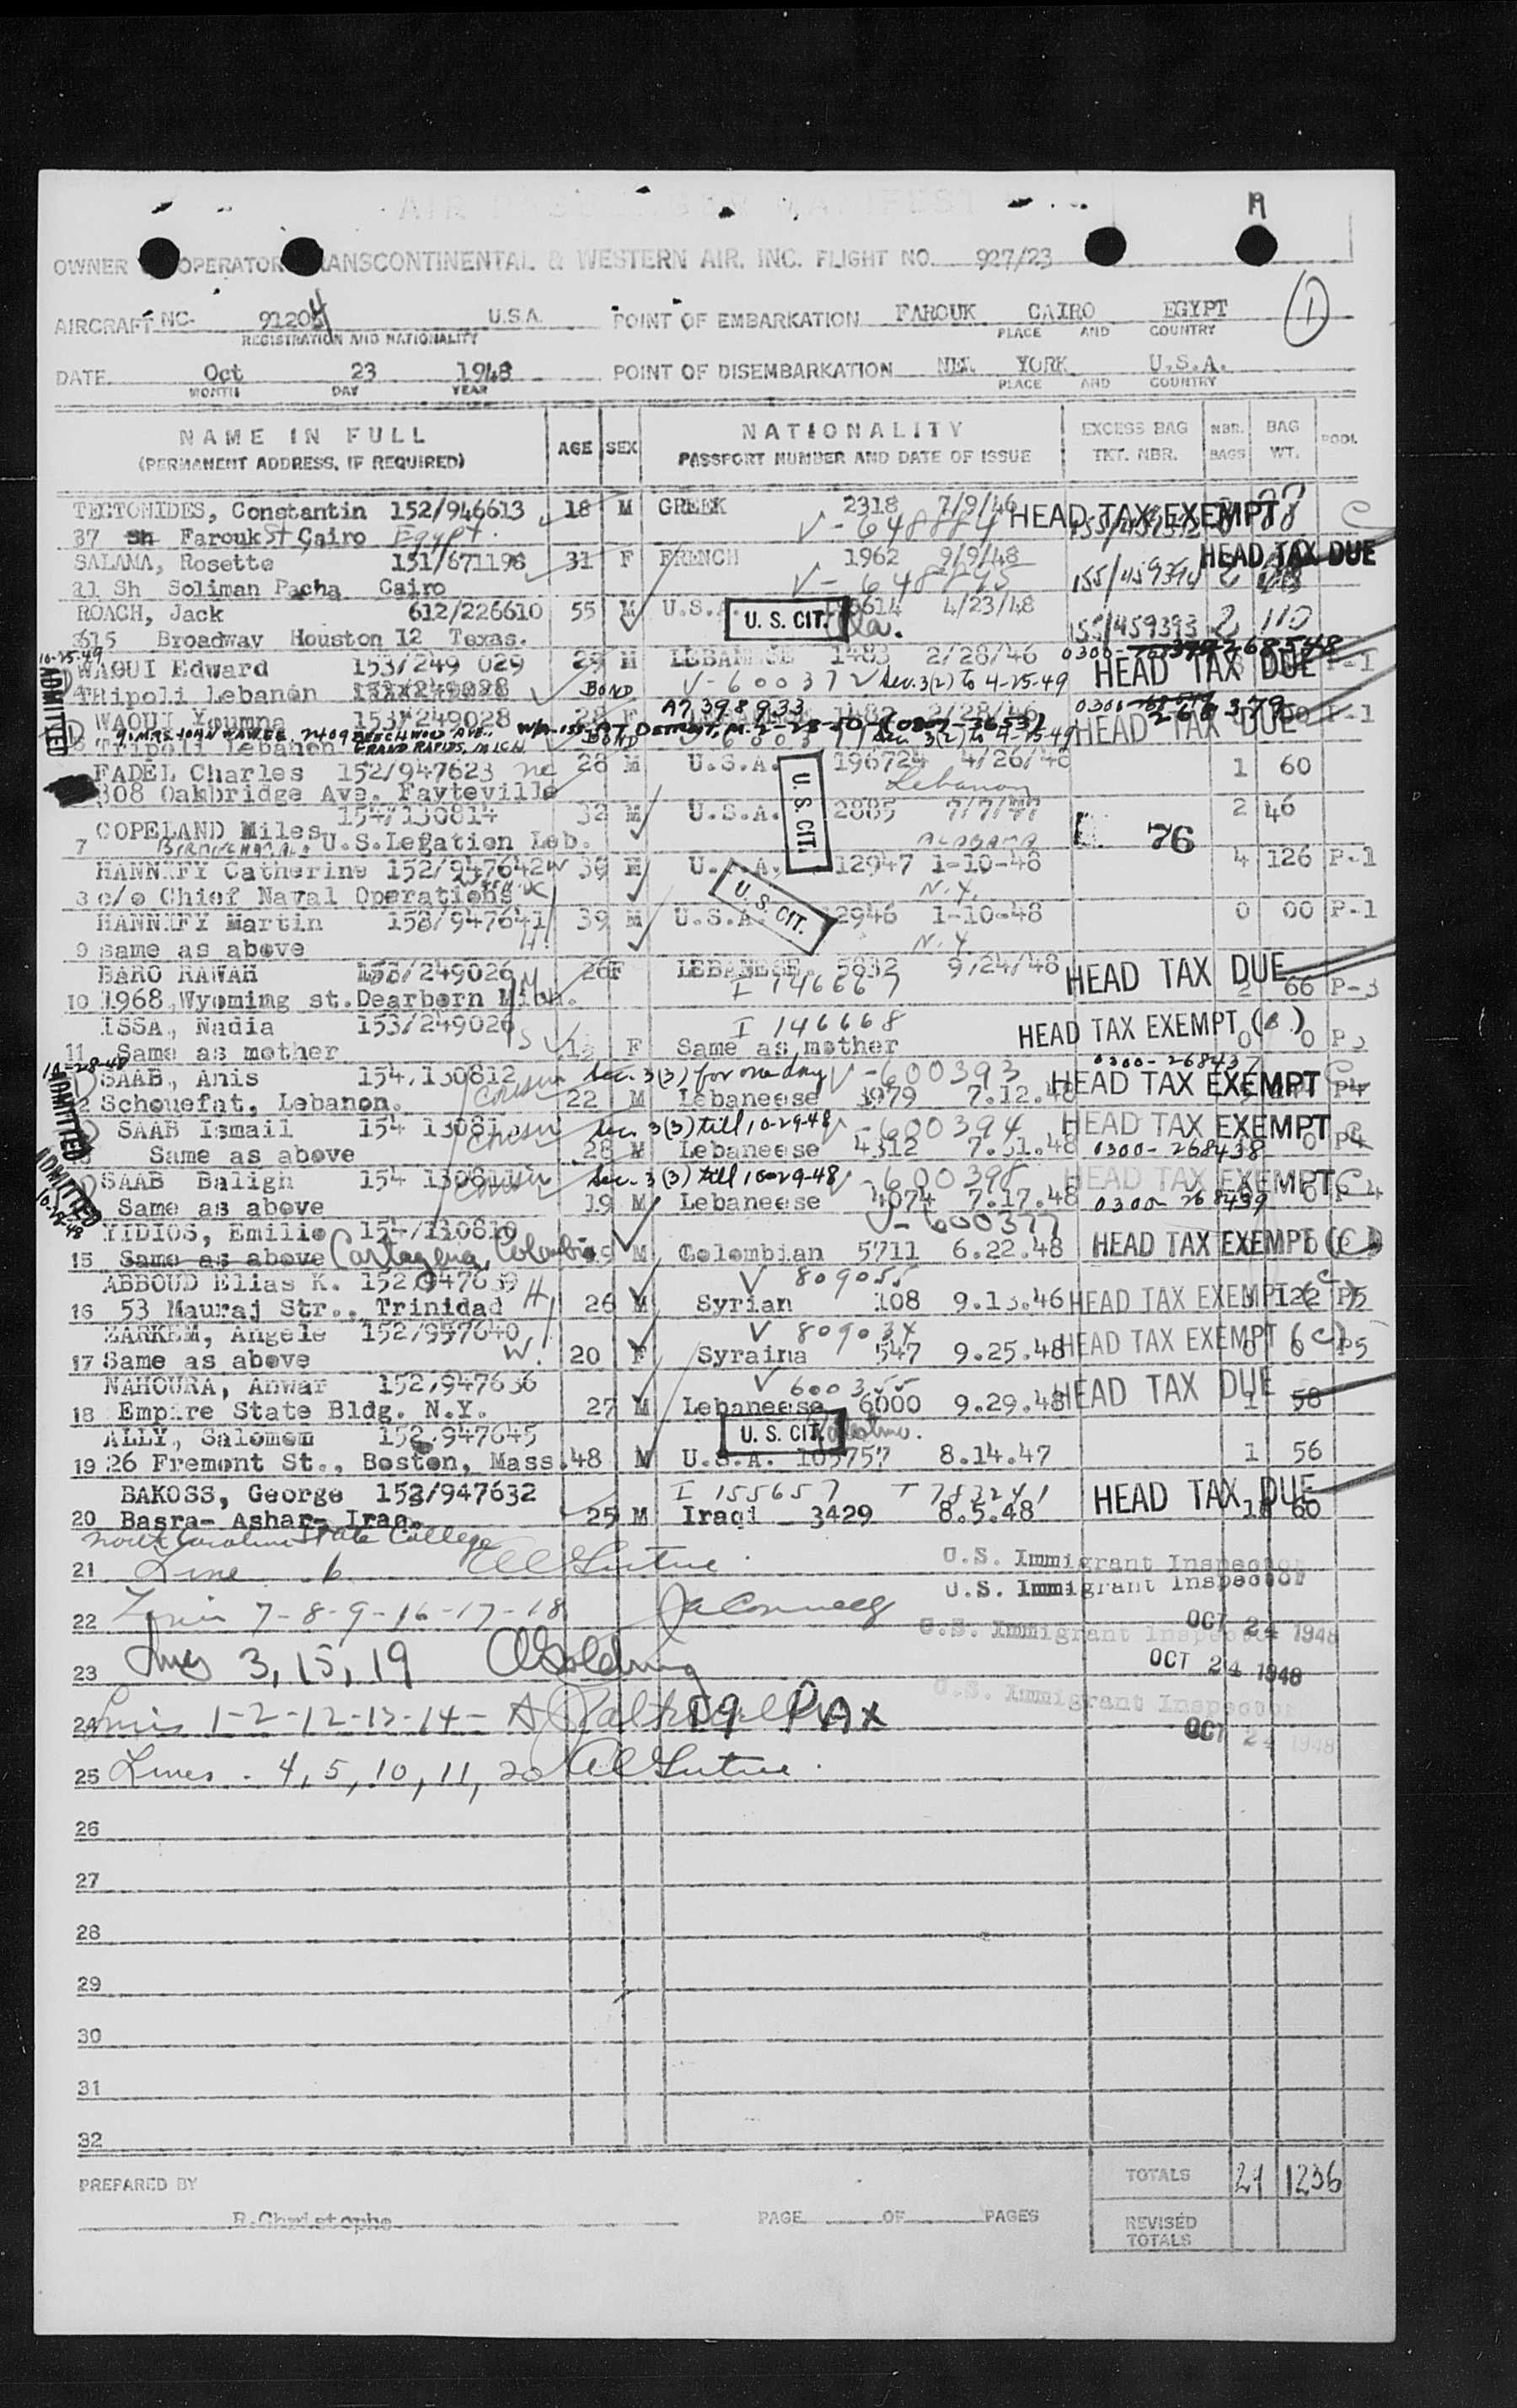 AIR PASSENGER MANIFEST
OWNER OPERATOR TRANSCONTINENTAL & WESTERN AIR. INC. FLIGHT NO. 927/23
AIRCRAFT NC- 91204 U.S.A. POINT OF EMBARKATION FAROUK CAIRO EGYPT 1
REGISTRATION AND NATIONALITY PLACE AND COUNTRY
DATE Oct 23 1948 POINT OF DISEMBARKATION NEW YORK U.S.A.
MONTH DAY YEAR PLACE AND COUNTRY
NAME IN FULL AGE SEX NATIONALITY EXCESS BAG NBR. BAG POOL
(PERMANENT ADDRESS, IF REQUIRED) PASSPORT NUMBER AND DATE OF ISSUE TKT. NBR. BAGS WT.
TECTONIDES, Constantin 152/946613 18 M GREEK 2318 7/9/46 HEAD TAX EXEMPT C
37 Sh Farouk St Cairo Egypt. V-648884
SALAMA, Rosette 151/671198 31 F FRENCH 1962 9/9/48 HEAD TAX DUE
21 Sh Soliman Pacha Cairo V-648895 155/459394 2
ROACH, Jack 612/226610 55 M U.S.A. U. S. CIT. 4/23/48
615 Broadway Houston 12 Texas. 155/459393 2 110
10-25-49 ADMITTED
WAOUI Edward 153/249 029 29 M LEBANESE 1483 2/28/46 HEAD TAX DUE P-1
Tripoli Lebanon BOND V-600372 Sec. 3(2) to 4-25-49
WAOUI Youmna 153/249028 28 F A7 398 933 1482 2/28/46 HEAD TAX DUE P-1
Tripoli Lebanon GRAND RAPIDS, MICH. BOND Sec. 3(2) to 4-25-49
FADEL Charles 152/947623 nc 28 M U.S.A. 196724 4/26/48 1 60
808 Oakbridge Ave. Fayteville Lebanon
154/130814 32 M U.S.A. U. S. CIT. 2885 7/7/47 2 46
COPELAND Miles
7 BIRMINGHAM ALA. U.S.Legation Leb. ALABAMA 76
HANNKFY Catherine 152/947642 U.S.A. 12947 1-10-48 4 126 P-1
8 c/o Chief Naval Operations U. S. CIT. N.Y.
HANNKFY Martin 152/947641 39 M U.S.A. 2946 1-10-48 0 00 P-1
9 same as above N.Y.
BARO RAWAH 153/249026 26 F LEBANESE 5832 9/24/48 HEAD TAX DUE
10 1968, Wyoming st. Dearborn Mich. I 146667 2 66 P-3
ISSA, Nadia 153/249026 I 146668 HEAD TAX EXEMPT (B)
11 Same as mother F Same as mother 0 0
10-28-48 ADMITTED
SAAB, Anis 154,130812 Sec. 3(3) for one day V-600393 0300-268437
Schouefat, Lebanon. 22 M Lebaneese 3979 7.12.48 HEAD TAX EXEMPT P4
SAAB Ismail Sec. 3(3) till 10-29-48 V-600394 HEAD TAX EXEMPT
Same as above 28 M Lebaneese 4312 7.31.48 0300-268438 0 P4
ADMITTED 10-28-48
SAAB Baligh Sec. 3(3) till 10-29-48 V-600398 HEAD TAX EXEMPT C
Same as above 19 M Lebaneese 4074 7.17.48 0300-268439
YIDIOS, Emilio 154/130810 V-600377
15 Same as above Cartagena, Colombia M Colombian 5711 6.22.48 HEAD TAX EXEMPT (C)
ABBOUD Elias K. 152,947639 H V 809055
16 53 Mauraj Str., Trinidad 26 M Syrian 108 9.13.46 HEAD TAX EXEMPT (C) 122 P5
ZARKEM, Angele 152/957640 W V 809034 HEAD TAX EXEMPT (C)
17 Same as above 20 F Syraina 547 9.25.48 P5
NAHOURA, Anwar 152,947636 V 600355 HEAD TAX DUE
18 Empire State Bldg. N.Y. 27 M Lebaneese 6000 9.29.48 1 58
ALLY, Salomom 152,947645 U. S. CIT. Palestine.
19 26 Fremont St., Boston, Mass. 48 M U.S.A. 105757 8.14.47 1 56
BAKOSS, George 152/947632 I 155657 HEAD TAX DUE
20 Basra- Ashar- Iraq. 25 M Iraqi 3429 8.5.48 60
North Carolina State College
21 Line 6 U.S. Immigrant Inspector
U.S. Immigrant Inspector
22 Lines 7-8-9-16-17-18 OCT 24 1948
U.S. Immigrant Inspector
23 Lines 3, 15, 19 OCT 24 1948
U.S. Immigrant Inspector
24 Lines 1-2-12-13-14- 19 PAX OCT 24 1948
25 Lines - 4, 5, 10, 11, 20
26
27
28
29
30
31
32
PREPARED BY TOTALS 21 1236
R.Christophe PAGE OF PAGES REVISED TOTALS